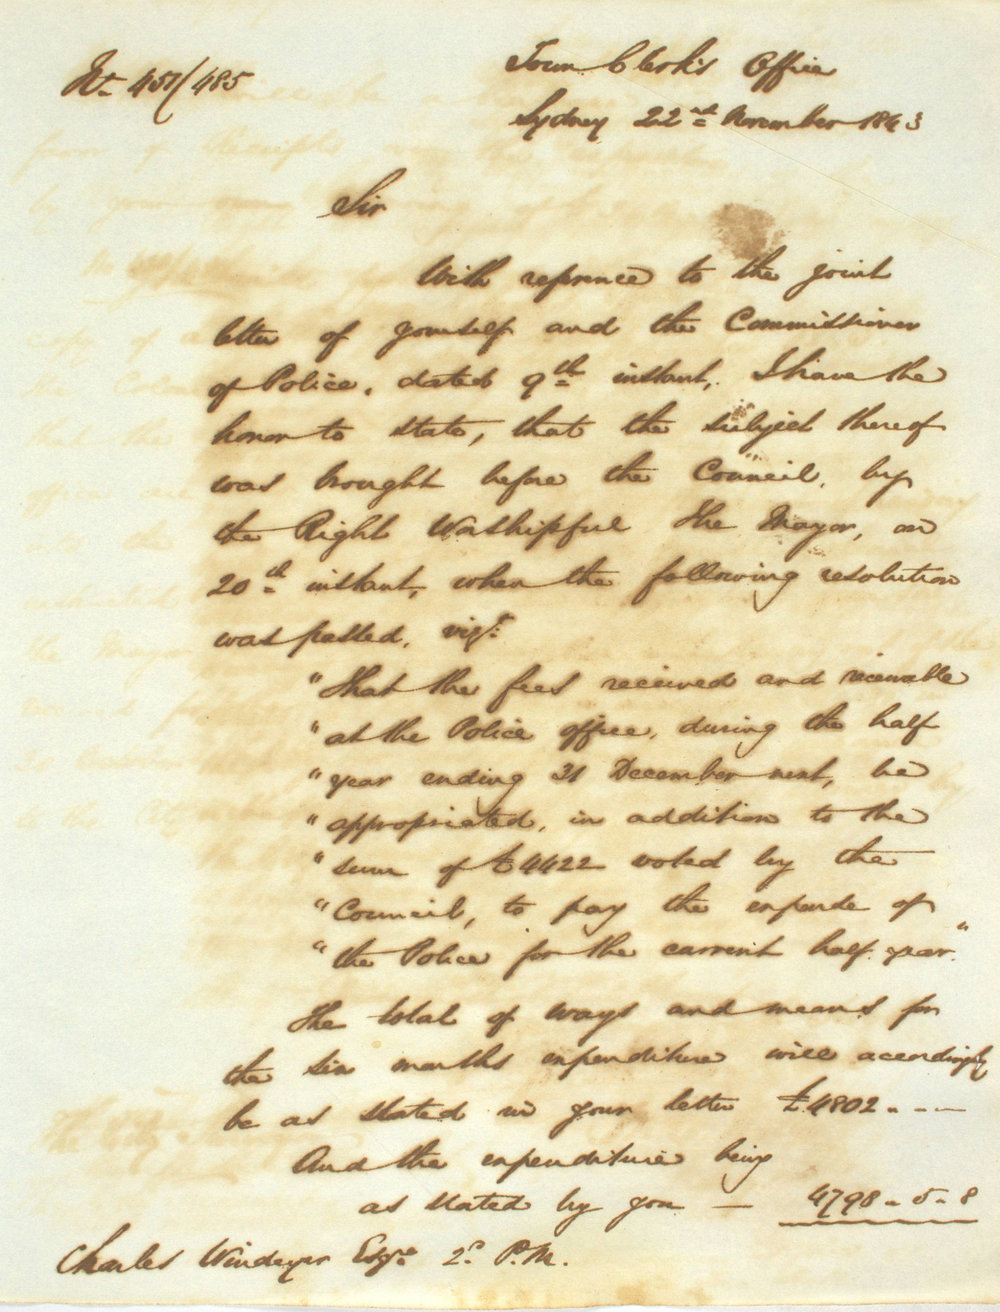 No. 451/485
Town Clerk's Office
Sydney 22nd November 1843
Sir
With reference to the joint
letter of yourself and the Commissioner
of Police, dated 9th instant, I have the
honor to state, that the subject thereof
was brought before the Council, by
the Right Worshipful the Mayor, on
20th instant, when the following resolution
was passed, vizt.
"That the fees received and receivable
"at the Police office, during the half
"year ending 31 December next, be
"appropriated, in addition to the
"sum of £4422 voted by the
"Council, to pay the expense of
"the Police for the current half year."
The total of ways and means for
the six months expenditure will accordingly
be as stated in your letter £4802 . - - -
And the expenditure being
as stated by you — 4798 - 5 - 8
Charles Windeyer Esqre P.M.